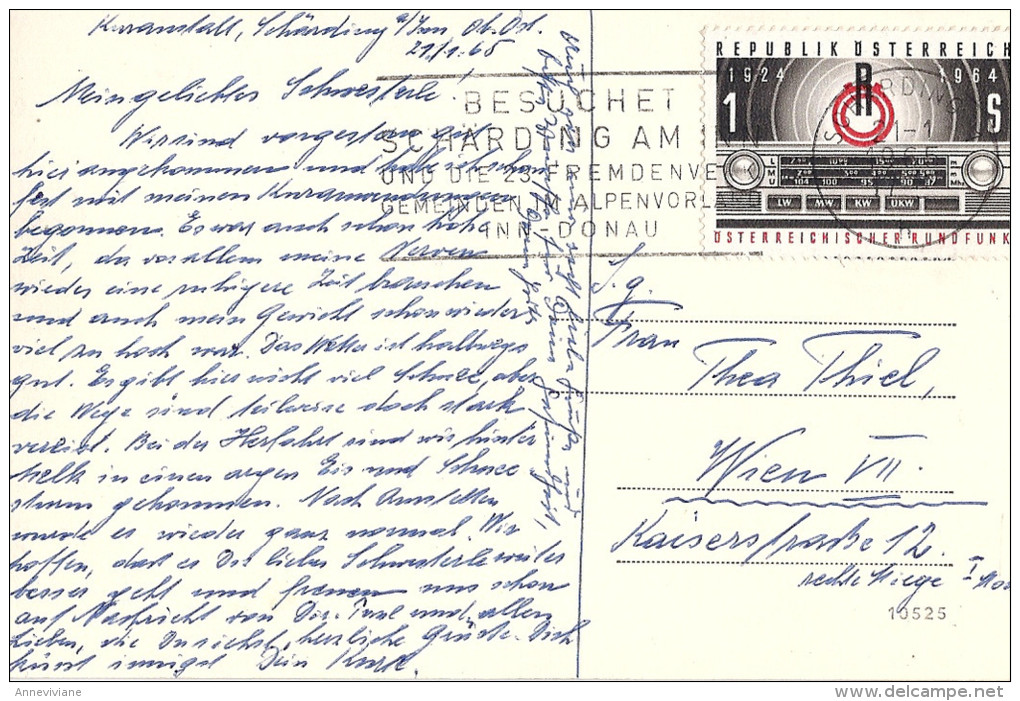 Kuranstalt, Schärding a/Inn Ob. Öst.
21/1. 65
Mein geliebtes Schwesterle.
Wir sind vorgestern gut
hier angekommen und habe ich schon
fest mit meinen Kuranwendungen
begonnen. Es war auch schon hohe
Zeit, da vor allem meine Nerven
wieder eine ruhigere Zeit brauchen
und auch mein Gewicht schon wieder
viel zu hoch war. Das Wetter ist halbwegs
gut. Es gibt hier nicht viel Schnee, aber
die Wege sind teilweise doch stark
vereist. Bei der Herfahrt sind wir hinter
Melk in einen argen Eis und Schnee
sturm gekommen. Nach Amstetten
wurde es wieder ganz normal. Wir
hoffen, dass es Dir liebes Schwesterle weiter
besser geht und freuen uns schon
auf Nachricht von Dir. und allen
Lieben, die Du siehst, herzliche Grüße. Dich
küsst innigst Dein
BESUCHET
SCHÄRDING AM INN
UND DIE 23 FREMDENVERK
GEMEINDEN IM ALPENVORLAND
INN-DONAU
REPUBLIK ÖSTERREICH
1924 1964
R
1 S
LW MW KW UKW
ÖSTERREICHISCHER RUNDFUNK
SCHÄRDING
21-1
1965
S. g.
Frau
Thea Thiel,
Wien VII.
Kaiserstraße 12.
rechte Stiege I
10525
Anneviviane
www.delcampe.net